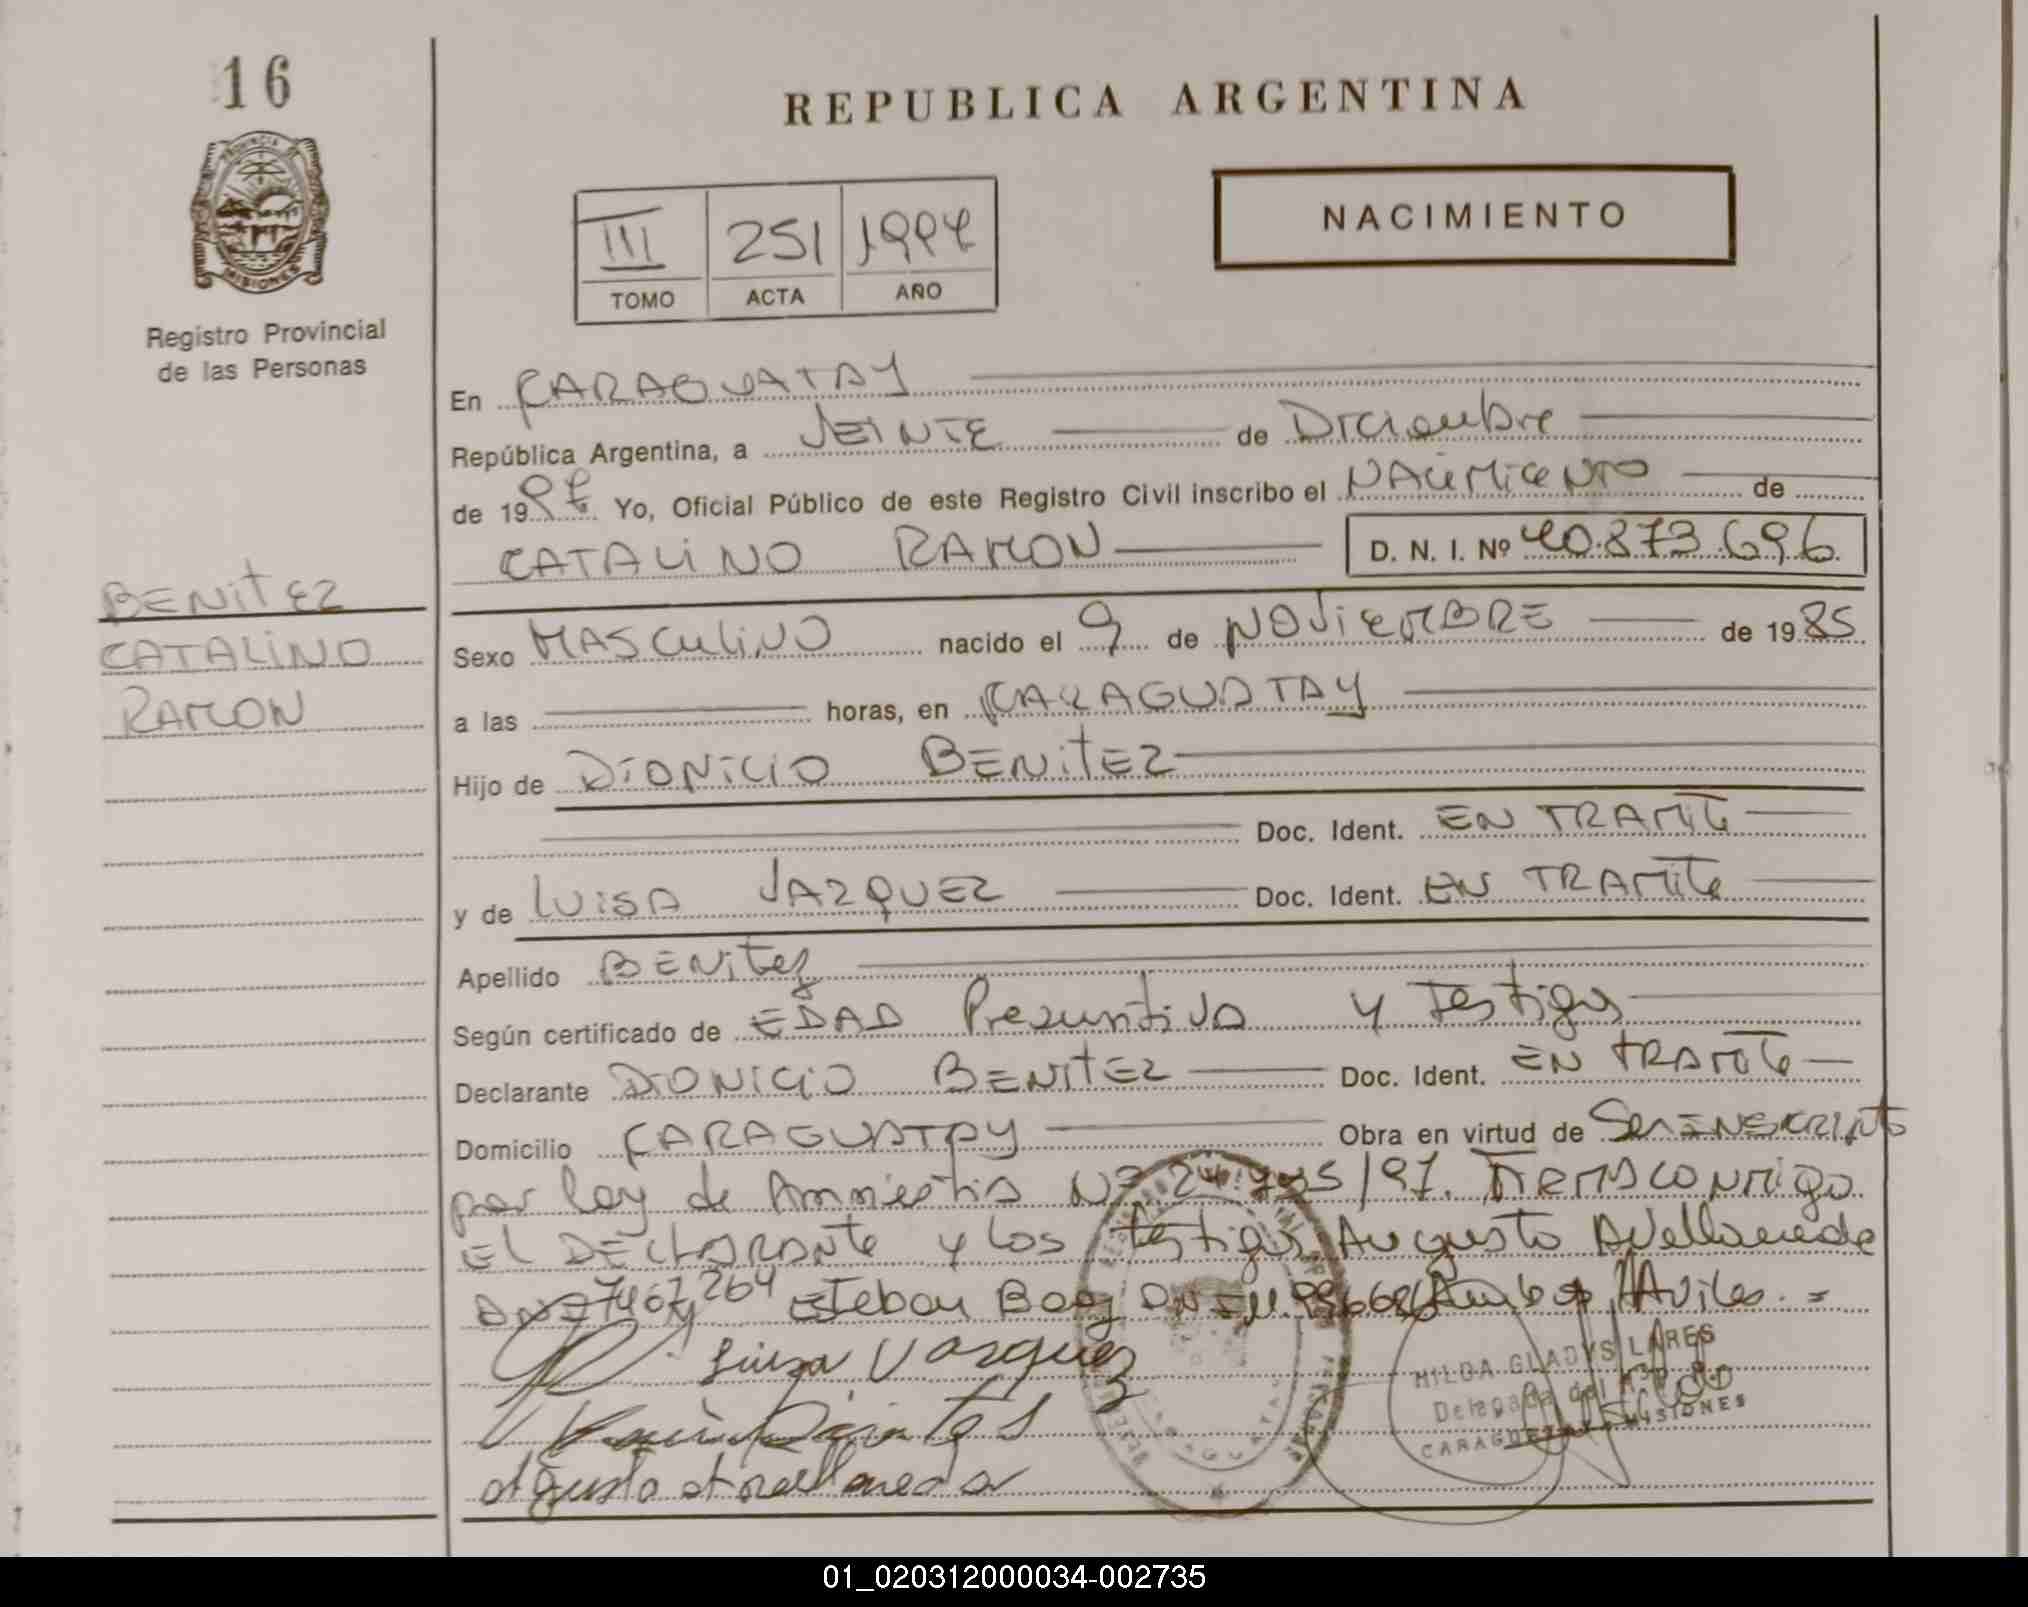 16
PROVINCIA DE
MISIONES
Registro Provincial
de las Personas
REPUBLICA ARGENTINA
NACIMIENTO
III 251
TOMO ACTA AÑO
En CARAGUATAY
República Argentina, a VEINTE de Diciembre
de 19 Yo, Oficial Público de este Registro Civil inscribo el NACIMIENTO de
CATALINO RAMON D. N. I. Nº 40.873.696
BENITEZ
CATALINO
RAMON
Sexo MASCULINO nacido el 9 de NOVIEMBRE de 1985
a las horas, en CARAGUATAY
Hijo de DIONICIO BENITEZ
Doc. Ident. EN TRAMITE
y de LUISA VAZQUEZ Doc. Ident. EN TRAMITE
Apellido BENITEZ
Según certificado de EDAD Presuntiva y Testigos
Declarante DIONICIO BENITEZ Doc. Ident. EN TRAMITE
Domicilio CARAGUATAY Obra en virtud de Ser
por ley de Amnistia Nº /97. FIRMA CONMIGO
EL DECLARANTE y los testigos Augusto Avellaneda
Esteban
Luisa Vazquez
HILDA GLADYS LARES
Delegada del
CARAGUATAY MISIONES
01_020312000034-002735